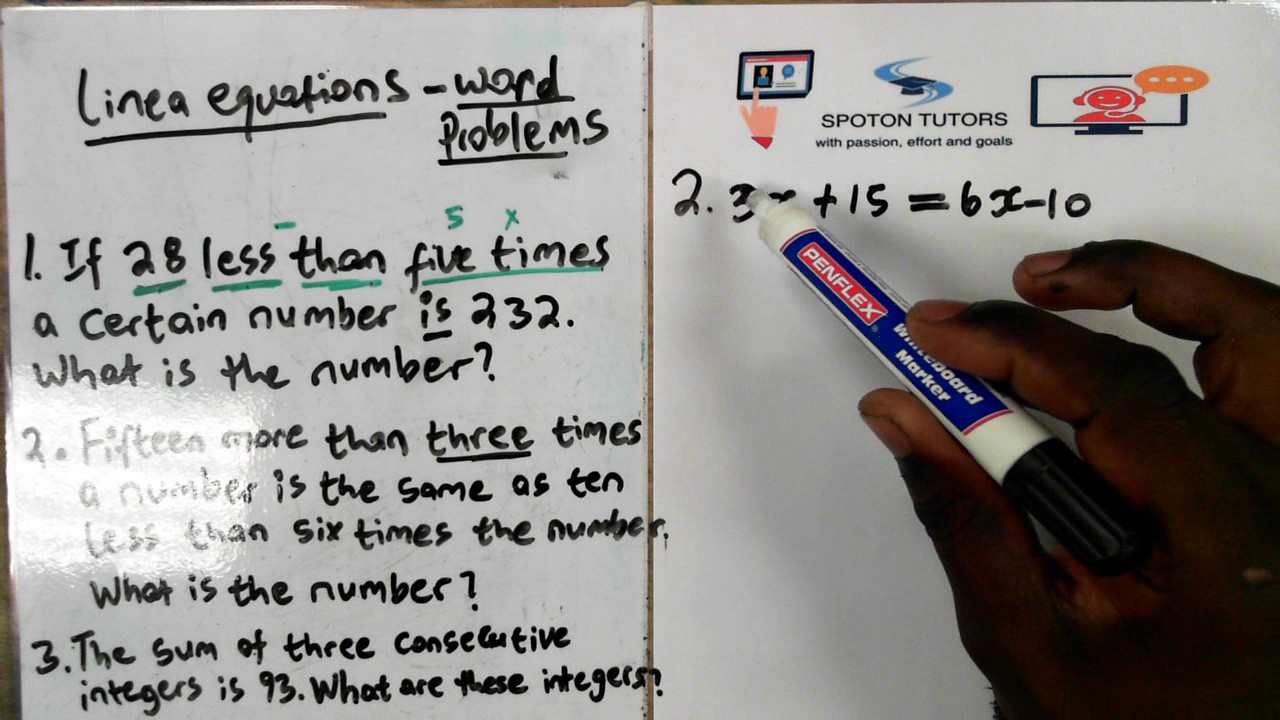 Linea equations - word
Problems
- 5 x
1. If 28 less than five times
a certain number is 232.
What is the number?
2. Fifteen more than three times
a number is the same as ten
less than six times the number.
What is the number?
3. The sum of three consecutive
integers is 93. What are these integers?
SPOTON TUTORS
with passion, effort and goals
2. 3x + 15 = 6x - 10
PENFLEX
Whiteboard
Marker